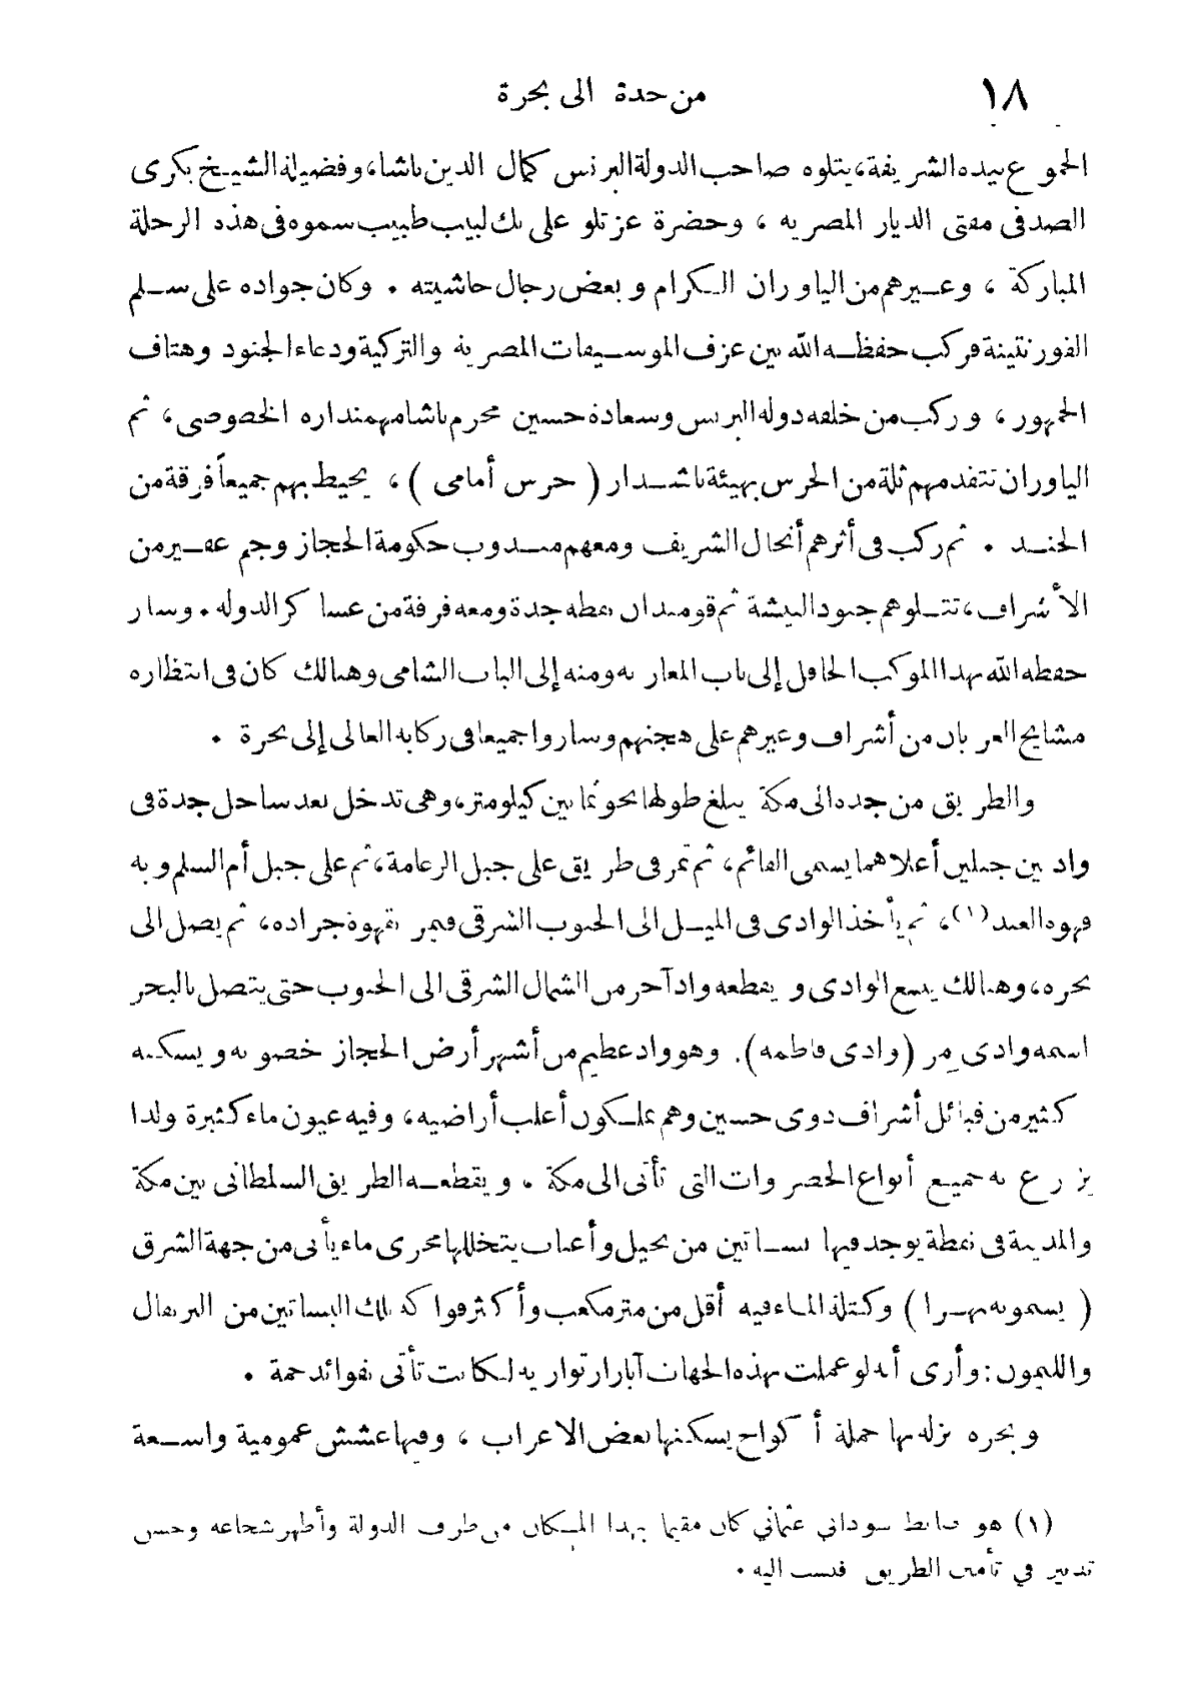 ١٨ من حدة الى بحرة
الجموع بيده الشريفة، يتلوه صاحب الدولة البرنس كمال الدين باشا، وفضيلة الشيخ بكرى
الصدفى مفتى الديار المصرية ، وحضرة عزتلو على بك لبيب طبيب سموه فى هذه الرحلة
المباركة ، وغيرهم من الياوران الكرام و بعض رجال حاشيته . وكان جواده على سلم
القورنتينة فركب حفظه الله بين عزف الموسيقات المصرية والتركية ودعاء الجنود وهتاف
الجمهور ، وركب من خلفه دولة البرنس وسعادة حسين محرم باشا مهمنداره الخصوصى، ثم
الياوران تتقدمهم ثلة من الحرس بهيئة باشدار ( حرس أمامى ) ، يحيط بهم جميعاً فرقة من
الجند . ثم ركب فى أثرهم أنجال الشريف ومعهم مندوب حكومة الحجاز وجم غفير من
الأشراف، تتلوهم جنود البيشة ثم قومندان نقطة جدة ومعه فرقة من عساكر الدولة . وسار
حفظه الله بهذا الموكب الحافل إلى باب المغاربة ومنه إلى الباب الشامى وهنالك كان فى انتظاره
مشايخ العربان من أشراف وغيرهم على هجنهم وساروا جميعا فى ركابه العالى إلى بحرة .
والطريق من جدة الى مكة يبلغ طولها نحو ثمانين كيلومتر، وهى تدخل بعد ساحل جدة فى
واد بين جبلين أعلاهما يسمى القائم، ثم تمر فى طريق على جبل الرغامة، ثم على جبل أم السلم وبه
قهوة العبد (١)، ثم يأخذ الوادى فى الميل الى الجنوب الشرقى فيمر بقهوة جراده، ثم يصل الى
بحره، وهنالك يتسع الوادى ويقطعه واد آخر من الشمال الشرقى الى الجنوب حتى يتصل بالبحر
اسمه وادى مِر (وادى فاطمه). وهو واد عظيم من أشهر أرض الحجاز خصوبه ويسكنه
كثير من قبائل أشراف ذوى حسين وهم يملكون أغلب أراضيه، وفيه عيون ماء كثيرة ولذا
يزرع به جميع أنواع الخضروات التى تأتى الى مكة . ويقطعه الطريق السلطانى بين مكة
والمدينة فى نقطة يوجد فيها بساتين من نخيل وأعناب يتخللها مجرى ماء يأتى من جهة الشرق
( يسمونه نهرا ) وكتلة الماء فيه أقل من متر مكعب وأكثر فواكه تلك البساتين من البرتقال
والليمون : وأرى أنه لو عملت بهذه الجهات آبار ارتوازية لكانت تأتى بفوائد جمة .
وبحره نزله بها جملة أكواخ يسكنها بعض الاعراب ، وفيها عشش عمومية واسعة
(١) هو ضابط سوداني عثماني كان مقيما بهذا المكان من طرف الدولة وأظهر شجاعه وحسن
تدبير في تأمين الطريق فنسب اليه .